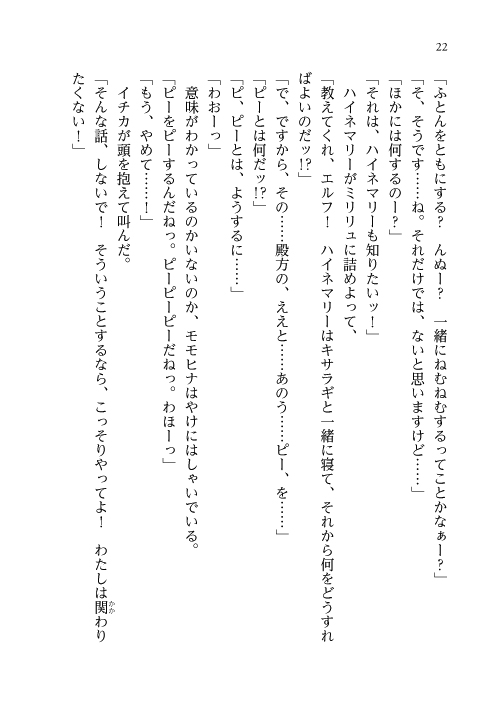 22
「ふとんをともにする？　んぬー？　一緒にねむねむするってことかなぁー？」
「そ、そうです……ね。それだけでは、ないと思いますけど……」
「ほかには何するのー？」
「それは、ハイネマリーも知りたいッ！」
ハイネマリーがミリリュに詰めよって、
「教えてくれ、エルフ！　ハイネマリーはキサラギと一緒に寝て、それから何をどうすれ
ばよいのだッ!?」
「で、ですから、その……殿方の、ええと……あのう……ピー、を……」
「ピーとは何だッ!?」
「ピ、ピーとは、ようするに……」
「わおーっ」
意味がわかっているのかいないのか、モモヒナはやけにはしゃいでいる。
「ピーをピーするんだねっ。ピーピーピーだねっ。わほーっ」
「もう、やめて……！」
イチカが頭を抱えて叫んだ。
「そんな話、しないで！　そういうことするなら、こっそりやってよ！　わたしは関わり
かか
たくない！」